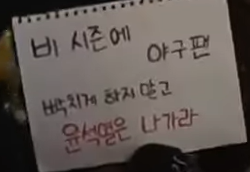 비 시즌에
야구팬
빡치게 하지 말고
윤석열은 나가라